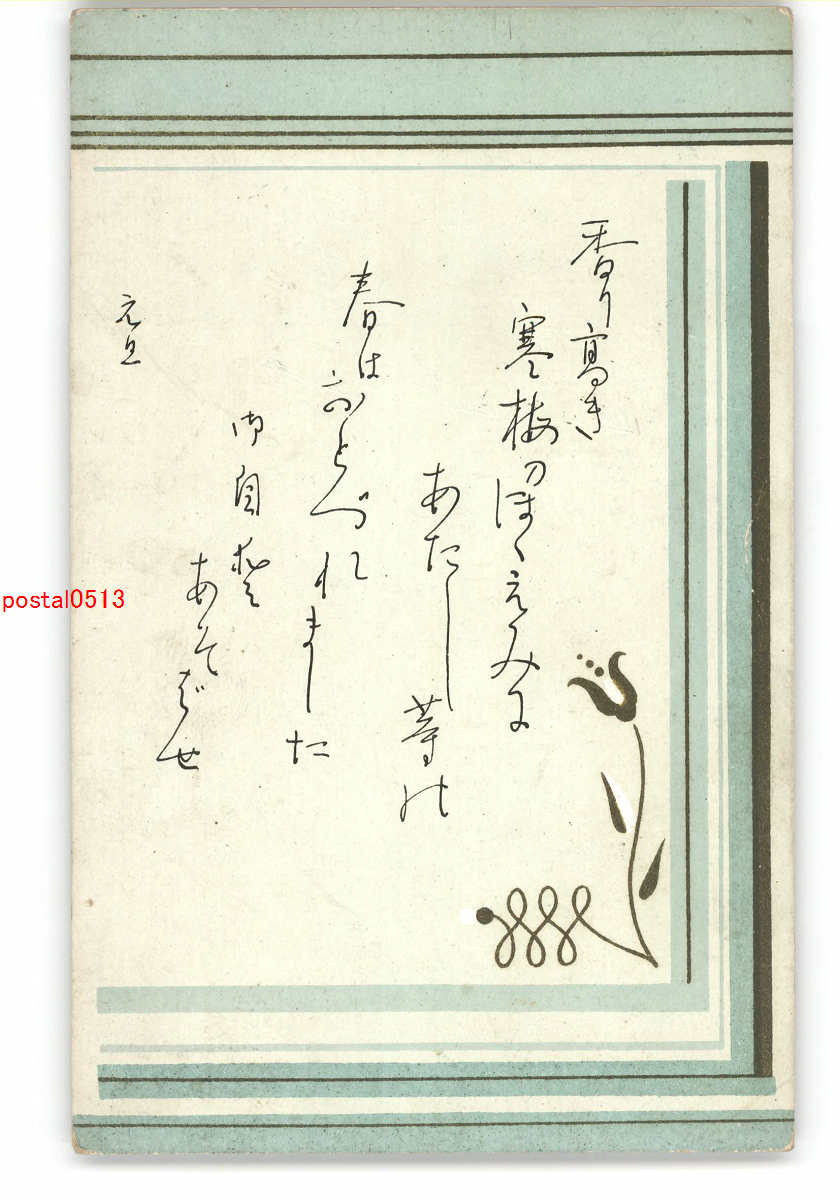 香り高き
寒梅のほゝえみに
あたし等の
春はおとづれました
御自愛
あそばせ
元旦
postal0513